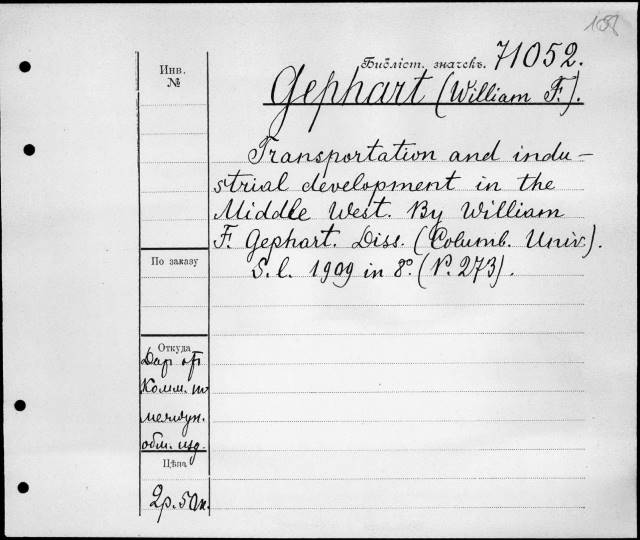 Библіот. значекъ. 71052.
Инв.
№
Gephart (William F.).
Transportation and indu-
strial development in the
Middle West. By William
F. Gephart. Diss. (Columb. Univ.).
S.l. 1909 in 8º. (P. 273).
По заказу
Откуда
Дар от
Комм. по
междун.
обм. изд.
Цѣна
2р. 50к.